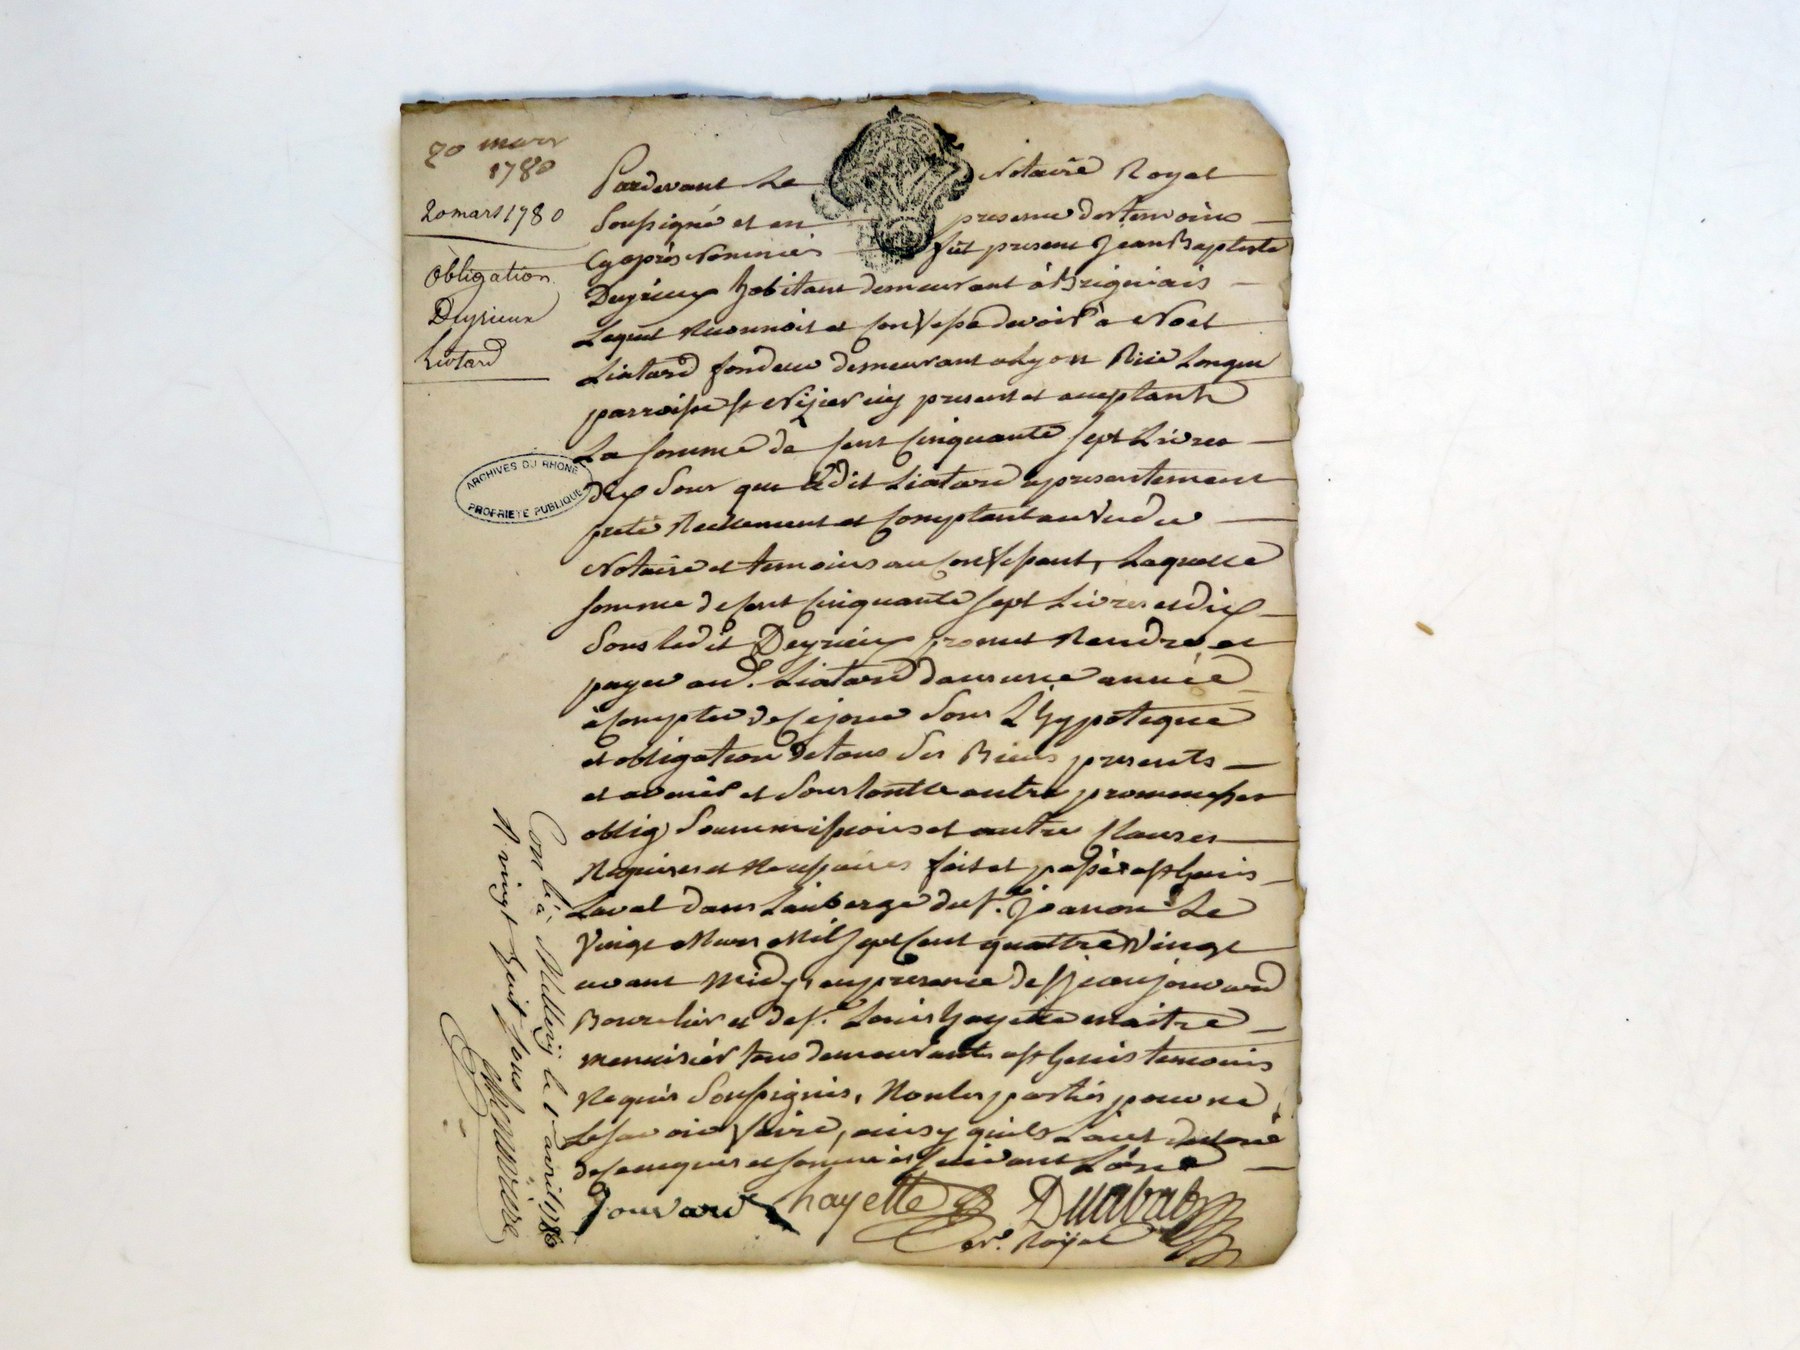 20 mars
1780
20 mars 1780
Obligation
Deyrieux
Liotard
ARCHIVES DU RHONE
PROPRIETE PUBLIQUE
Pardevant Le Notaire Royal
Soussigné et en presence des temoins
Cy après Nommés fût present Jean Baptiste
Deyrieux habitant demeurant à Brignais
Lequel Reconnoit et Confesse devoir à Noel
Liatard fondeur demeurant a Lyon Rüe Longue
parroisse St Nizier icy present et acceptant
La somme de Cent Cinquante Sept Livres
dix Sous que Ledit Liatard a presentement
preté Réellement et Comptant au Vu du
Notaire et temoins au Confessant, Laquelle
somme de Cent Cinquante Sept Livres et dix
Sous ledit Deyrieux promet Rendre et
payer aud. Liatard dans une année
à Compter de Ce jour Sous L'hypoteque
et obligation de tous Ses Biens presents
et avenir et Sous toutte autre promesses
oblig Soummissions et autres Clauses
Requises et Necessaires fait et passé a St Genis
Laval dans L'auberge du Sr. Jeanon Le
Vingt Mars Mil Sept Cent quattre Vingt
avant Midy, en presence de Sr Jean Jouvard
Bourelier et de Sr. Louis hayette maitre
menuisier tous demeurants a St Genis temoins
Requis Soussignés, Non les parties pour ne
Le Savoir faire, ainsy quils L'ont declaré
de Ce enquis et sommés Suivant L'ord.
Jouvard hayette Dulabab
Nre. Royal
Con lé à Millery le 1 avril 1780
R vingt huit Sous